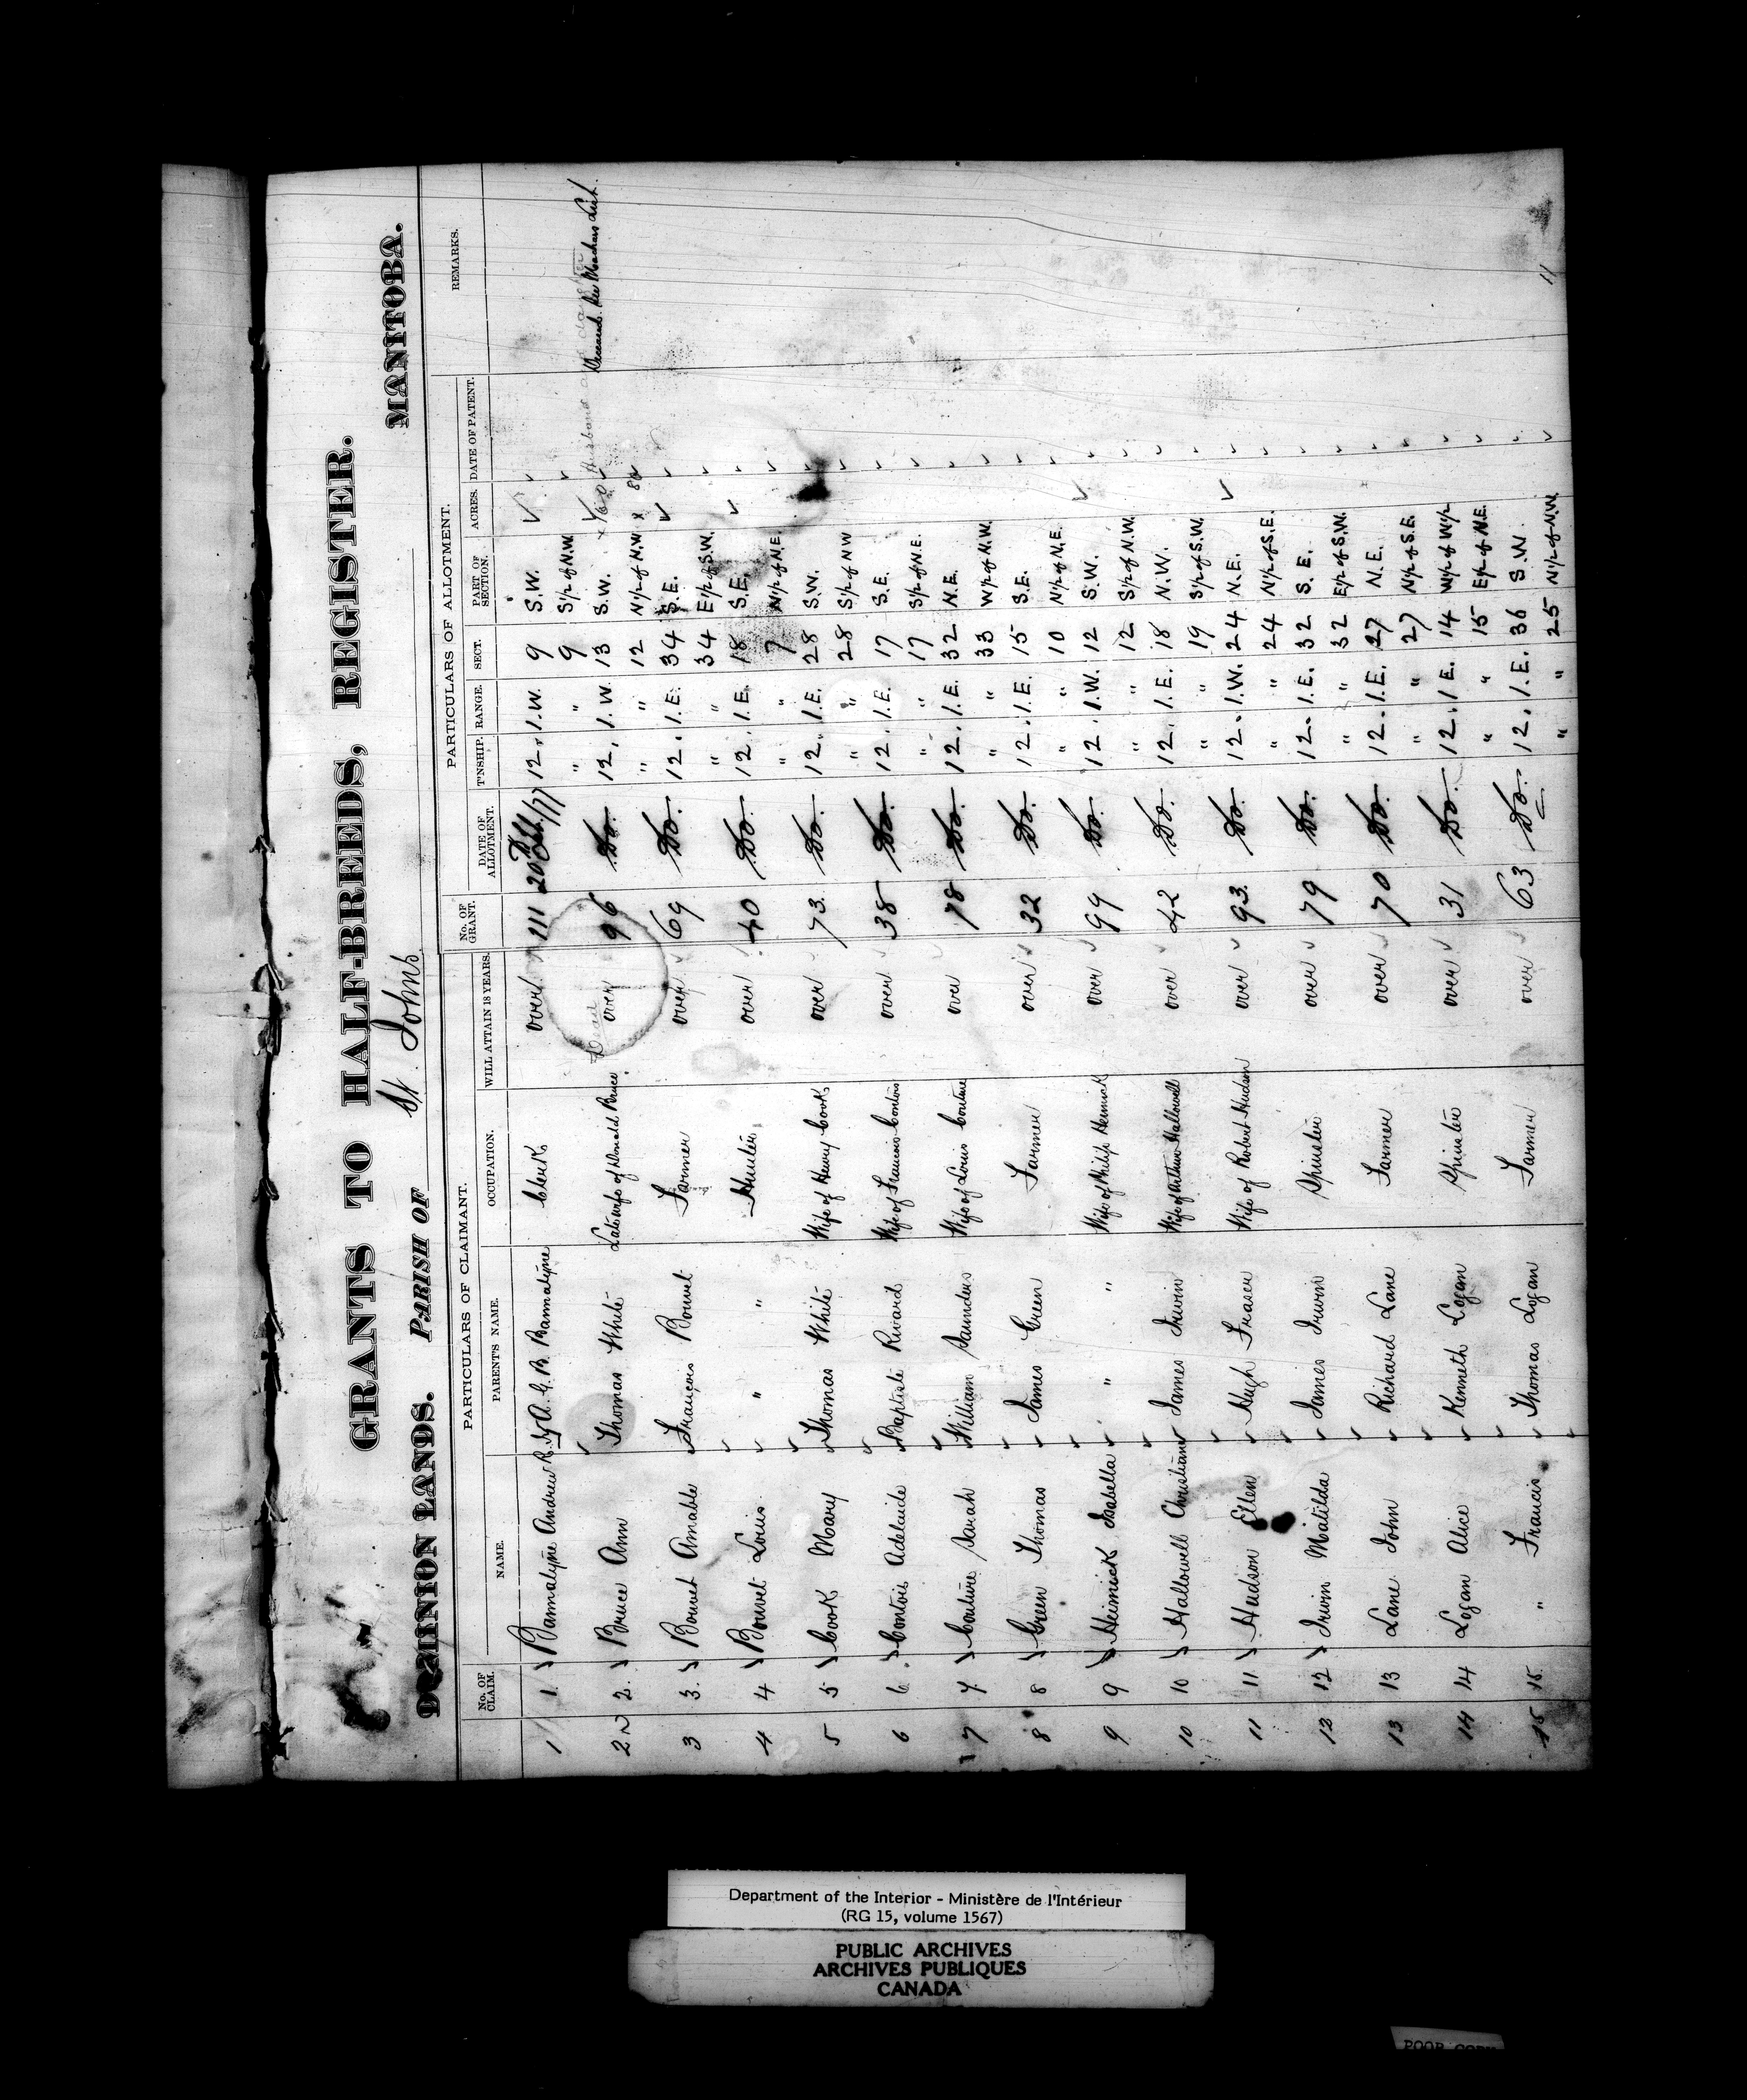 GRANTS TO HALF-BREEDS, REGISTER.
DOMINION LANDS. PARISH OF St. Johns MANITOBA.
PARTICULARS OF CLAIMANT. PARTICULARS OF ALLOTMENT.
No. OF CLAIM. NAME. PARENT'S NAME. OCCUPATION. WILL ATTAIN 18 YEARS. No. OF GRANT. DATE OF ALLOTMENT. T'NSHIP. RANGE. SECT. PART OF SECTION. ACRES. DATE OF PATENT. REMARKS.
1 1. Bannatyne Andrew R. J. A. G. B. Bannatyne Clerk over 111 20 12. 1.W. 9 S.W.
" " 9 S½ of N.W.
2 2. Bruce Ann Thomas White Late wife of Donald Bruce Dead over 96 Do. 12. 1.W. 13 S.W. 160 Husband Deceased.
" " 12 N½ of N.W. x 80
3 3. Bouvet Amable François Bouvet Farmer over 69 Do. 12. 1.E. 34 S.E.
" " 34 E½ of S.W.
4 4 Bouvet Louis " " Hunter over 40 Do. 12. 1.E. 18 S.E.
" " 7 N½ of N.E.
5 5 Cook Mary Thomas White Wife of Henry Cook over 73. Do. 12. 1.E. 28 S.W.
" " 28 S½ of NW
6 6. Contois Adelaide Baptiste Rivard Wife of Francois Contois over 38 Do. 12. 1.E. 17 S.E.
" " 17 S½ of N.E.
7 7. Couture Sarah William Saunders Wife of Louis Couture over 78 Do. 12. 1.E. 32 N.E.
" " 33 W½ of N.W.
8 8 Green Thomas James Green Farmer over 32 Do. 12. 1.E. 15 S.E.
" " 10 N½ of N.E.
9 9 Heimick Isabella " " Wife of Philip Heimick over 99 Do. 12. 1.W. 12 S.W.
" " 12 S½ of N.W.
10 10 Hallowell Christiann James Irwin Wife of Arthur Hallowell over 42 Do. 12. 1.E. 18 N.W.
" " 19 S½ of S.W.
11 11 Hudson Ellen Hugh Fraser Wife of Robert Hudson over 93. Do. 12. 1.W. 24 N.E.
" " 24 N½ of S.E.
12 12 Irwin Matilda James Irwin Spinster over 79 Do. 12. 1.E. 32 S.E.
" " 32 E½ of S.W.
13 13 Lane John Richard Lane Farmer over 70 Do. 12. 1.E. 27 N.E.
" " 27 N½ of S.E.
14 14 Logan Alice Kenneth Logan Spinster over 31 Do. 12. 1.E. 14 W½ of W½
" " 15 E½ of N.E.
15 15. " Francis Thomas Logan Farmer over 63 Do. 12. 1.E. 36 S.W.
" " 25 N½ of N.W.
11
Department of the Interior - Ministère de l'Intérieur
(RG 15, volume 1567)
PUBLIC ARCHIVES
ARCHIVES PUBLIQUES
CANADA
POOR COPY